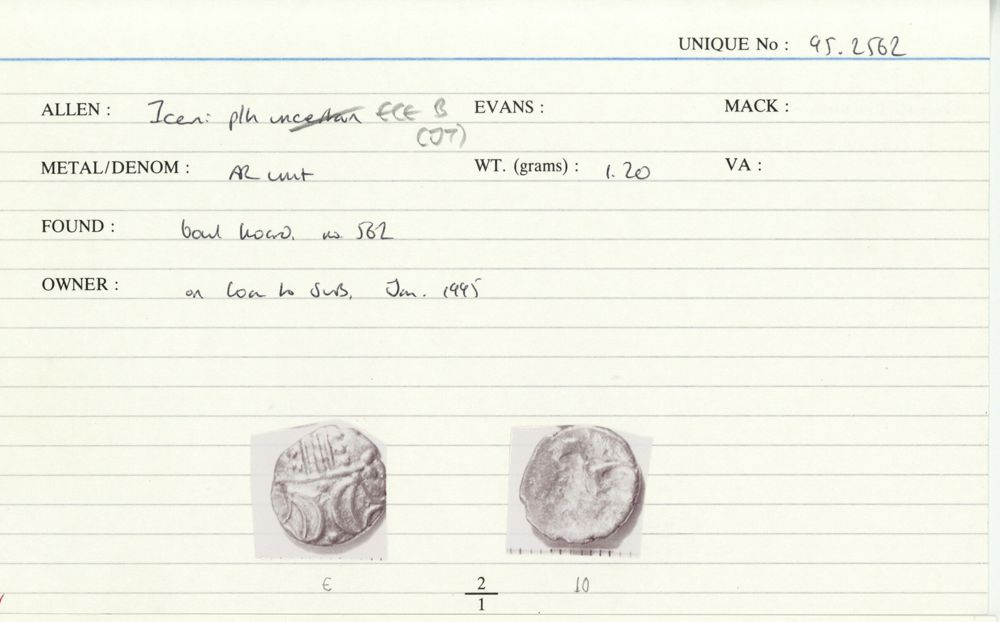 UNIQUE No : 95.2562
ALLEN : Iceni plh uncertain ECE B EVANS : MACK :
(JT)
METAL/DENOM : AR unit WT. (grams) : 1.20 VA :
FOUND : bowl hoard, no. 562
OWNER : on loan to SWB, Jan. 1995
E 2 10
1